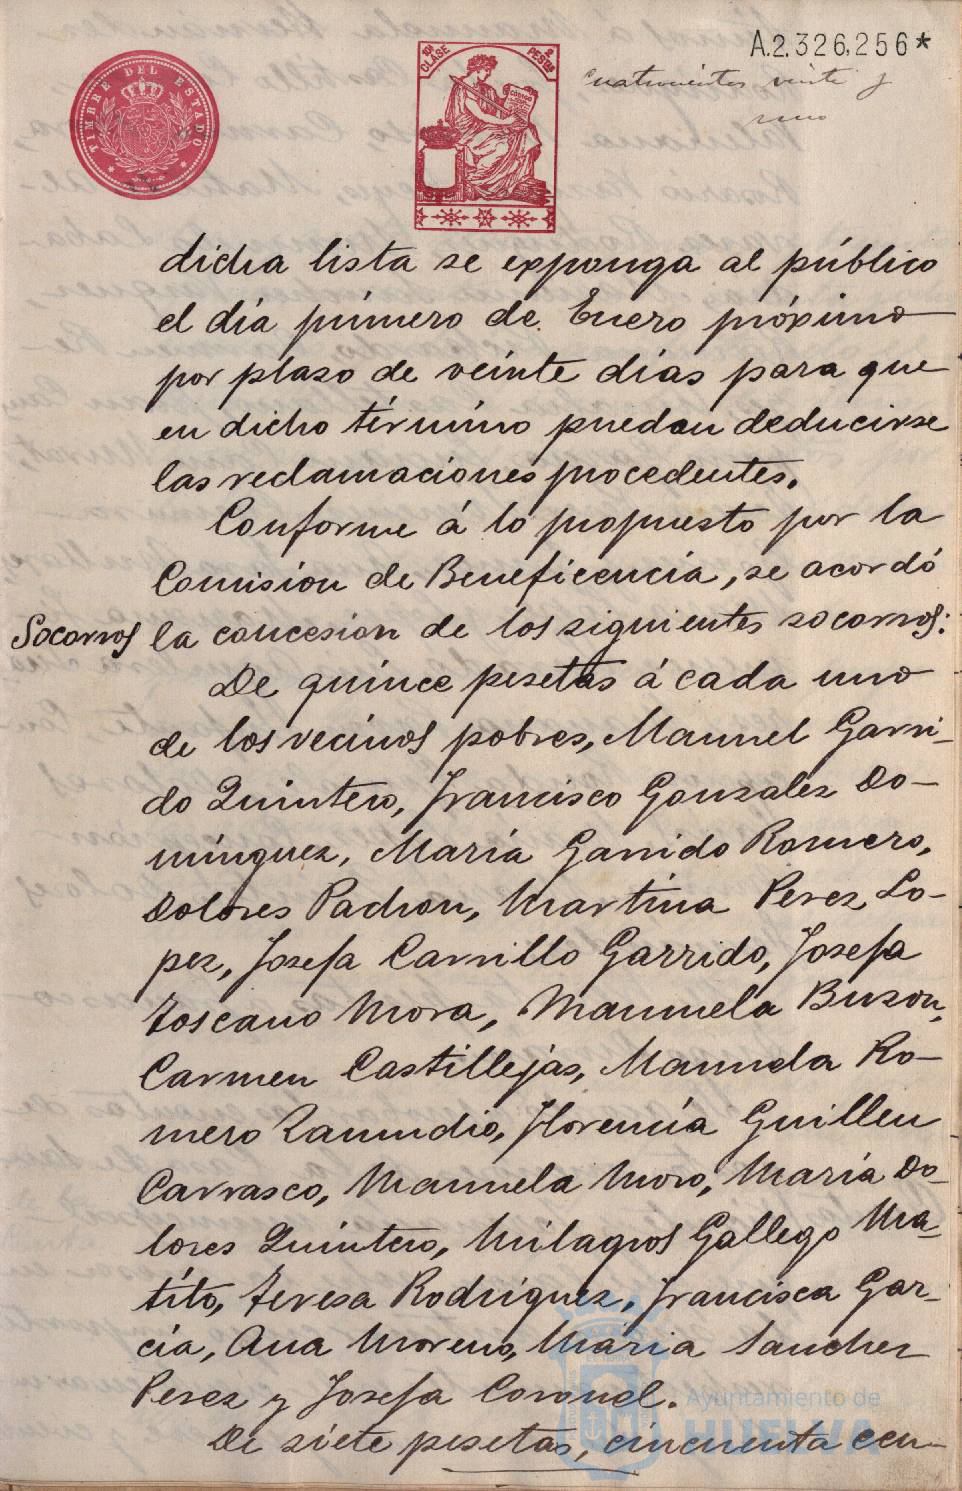 TIMBRE DEL ESTADO
10ª CLASE
2 PESETAS
CODIGO
A.2.326.256*
cuatrocientos veinte y
uno
dicha lista se exponga al público
el día primero de Enero próximo
por plazo de veinte días para que
en dicho término puedan deducirse
las reclamaciones procedentes.
Conforme á lo propuesto por la
Comision de Beneficencia, se acordó
Socorros
la concesion de los siguientes socorros:
De quince pesetas á cada uno
de los vecinos pobres, Manuel Garri-
do Quintero, Francisco Gonzalez Do-
minguez, María Garrido Romero,
Dolores Padron, Martina Perez Lo-
pez, Josefa Carrillo Garrido, Josefa
Toscano Mora, Manuela Buzon,
Carmen Castillejas, Manuela Ro-
mero Zamudio, Florencia Guillen
Carrasco, Manuela Moro, María Do-
lores Quintero, Milagros Gallego Ma-
tito, Teresa Rodriguez, Francisca Gar-
cía, Ana Moreno, María Sanchez
Perez y Josefa Coronel.
De siete pesetas, cincuenta cen-
Ayuntamiento de
HUELVA